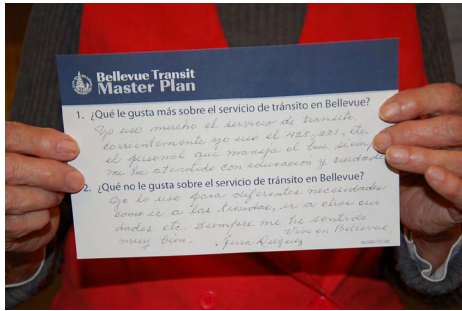 Bellevue Transit
Master Plan
1. ¿Qué le gusta más sobre el servicio de tránsito en Bellevue?
Yo uso mucho el servicio de transito,
corrientemente yo uso el 425, 221, etc.
el personal que maneja el bus siem
me ha atendido con educacion y cuidado
2. ¿Qué no le gusta sobre el servicio de tránsito en Bellevue?
Yo lo uso para diferentes necesidades
como ir a las tiendas, ir a otras ciu
dades etc. siempre me he sentido
muy bien.
Vivo en Bellevue